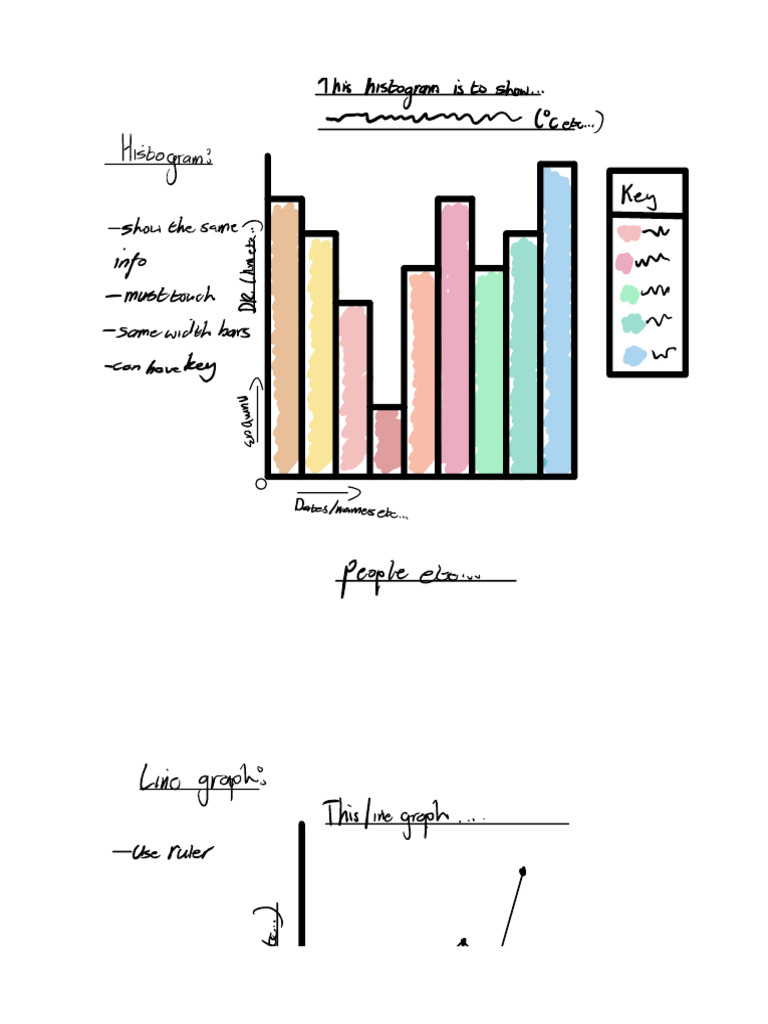 This histogram is to show...
(°C etc...)
Histogram:
- show the same
info
- must touch
- same width bars
- can have key
Numbers
0
Dates/names etc...
Key
People etc....
Line graph:
This line graph ....
- Use ruler